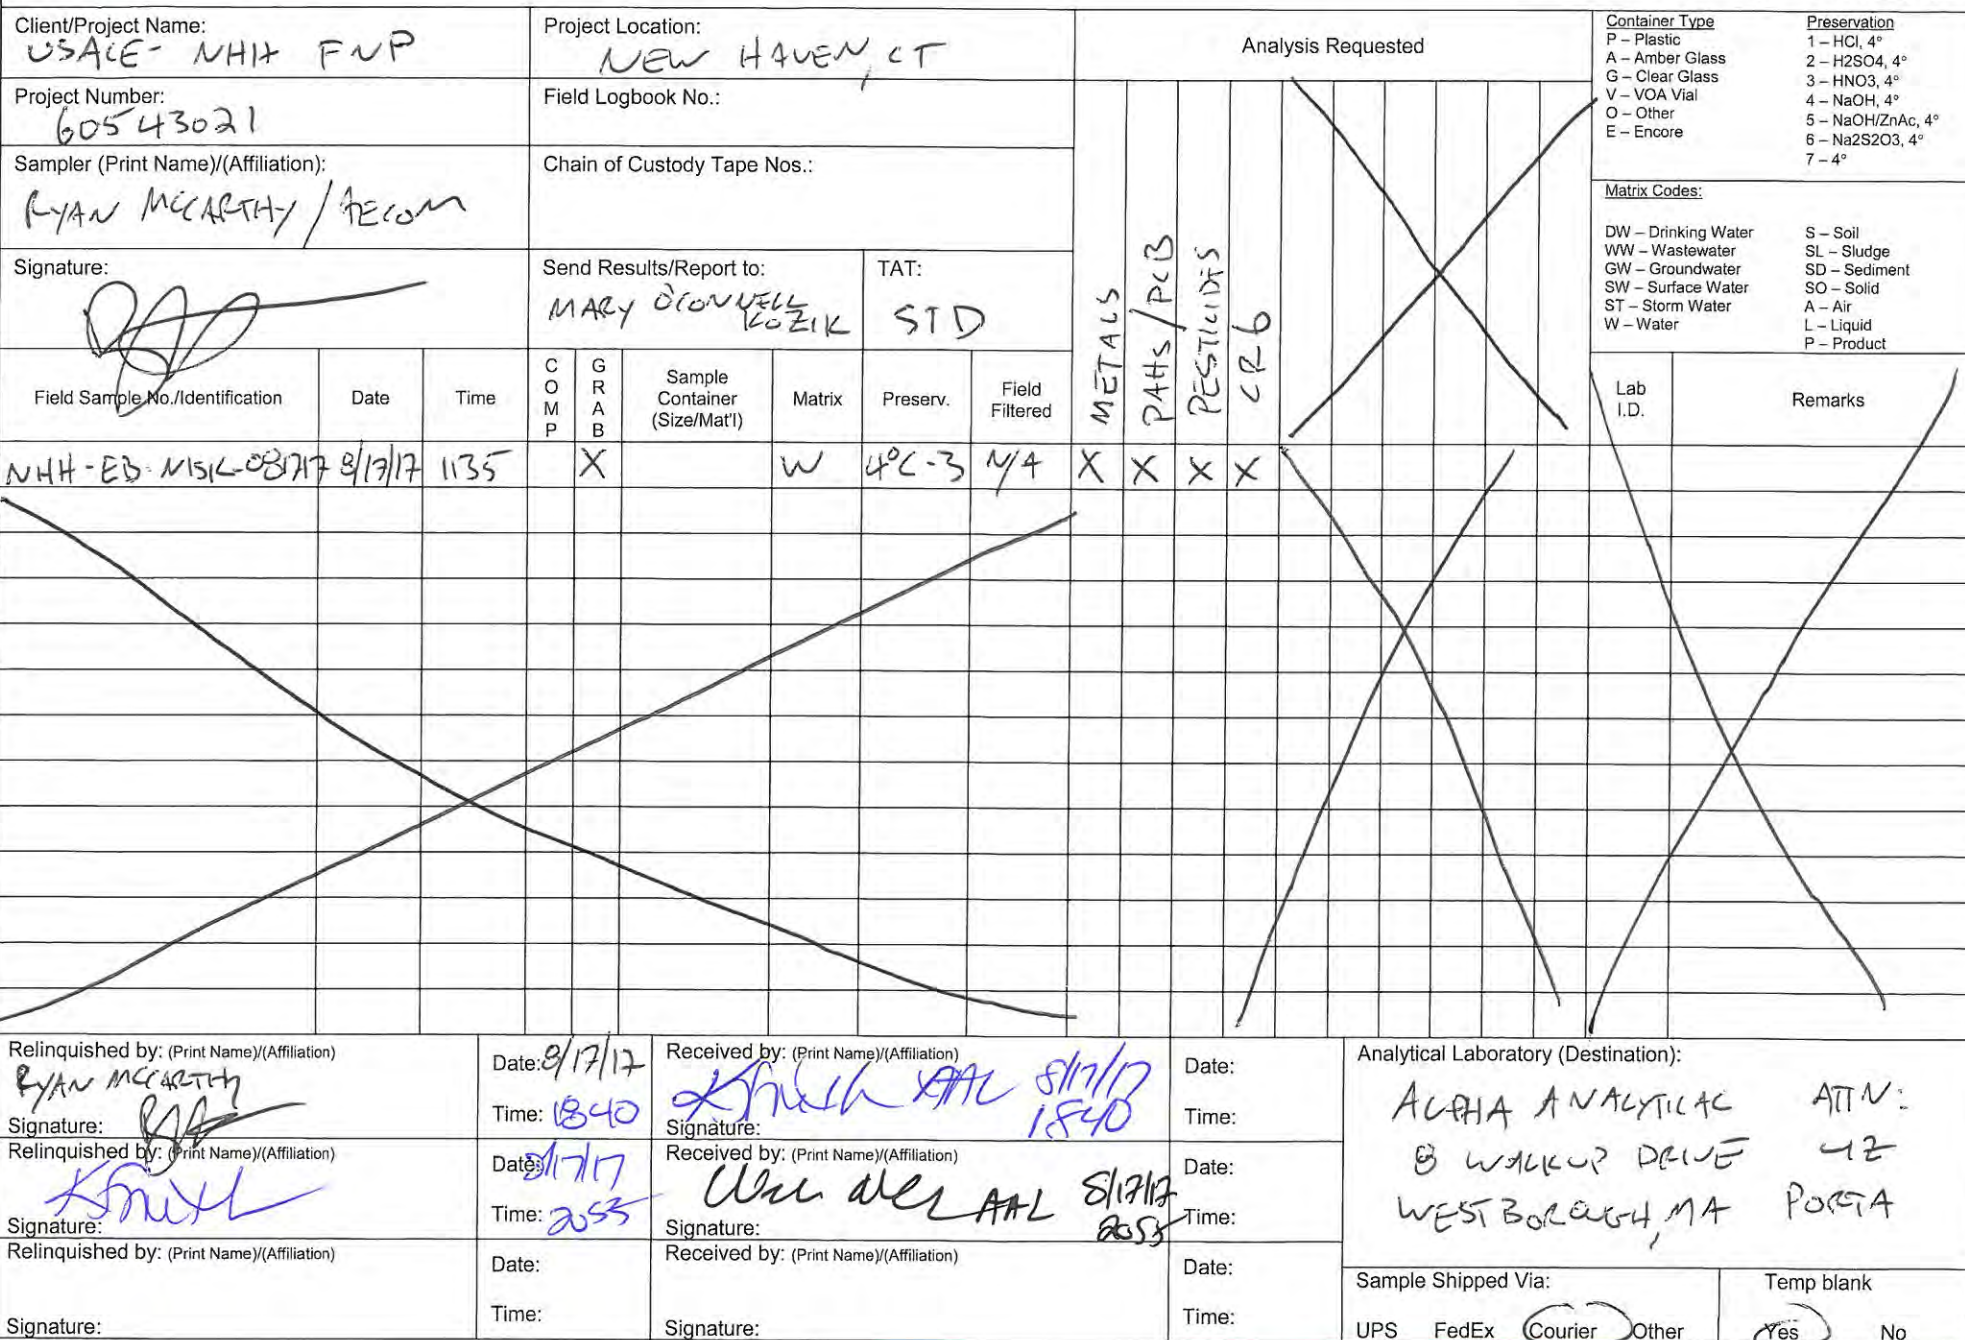 Client/Project Name:
USACE- NHH FNP
Project Location:
NEW HAVEN, CT
Analysis Requested
Container Type
P – Plastic
A – Amber Glass
G – Clear Glass
V – VOA Vial
O – Other
E – Encore
Preservation
1 – HCl, 4°
2 – H2SO4, 4°
3 – HNO3, 4°
4 – NaOH, 4°
5 – NaOH/ZnAc, 4°
6 – Na2S2O3, 4°
7 – 4°
Project Number:
60543021
Field Logbook No.:
Sampler (Print Name)/(Affiliation):
RYAN MCCARTHY/AECOM
Chain of Custody Tape Nos.:
Matrix Codes:
DW – Drinking Water
WW – Wastewater
GW – Groundwater
SW – Surface Water
ST – Storm Water
W – Water
S – Soil
SL – Sludge
SD – Sediment
SO – Solid
A – Air
L – Liquid
P – Product
Signature:
Send Results/Report to:
MARY O'CONNELL
KOZIK
TAT:
STD
METALS
PAHs/PCB
PESTICIDES
CR6
Field Sample No./Identification
Date
Time
COMP
GRAB
Sample
Container
(Size/Mat'l)
Matrix
Preserv.
Field
Filtered
Lab
I.D.
Remarks
NHH-EB- 081717 8/17/17 1135 X W 4°C-3 N/A X X X X
Relinquished by: (Print Name)/(Affiliation)
RYAN MCCARTHY
Signature:
Date: 8/17/17
Time: 1840
Received by: (Print Name)/(Affiliation)
AAL 8/17/17
1840
Signature:
Date:
Time:
Analytical Laboratory (Destination):
ALPHA ANALYTICAL ATTN:
8 WALKUP DRIVE LIZ
WESTBOROUGH, MA PORTA
Relinquished by: (Print Name)/(Affiliation)
Signature:
Date: 8/17/17
Time: 2055
Received by: (Print Name)/(Affiliation)
AAL 8/17/17
2055
Signature:
Date:
Time:
Relinquished by: (Print Name)/(Affiliation)
Signature:
Date:
Time:
Received by: (Print Name)/(Affiliation)
Signature:
Date:
Time:
Sample Shipped Via:
UPS FedEx Courier Other
Temp blank
Yes No